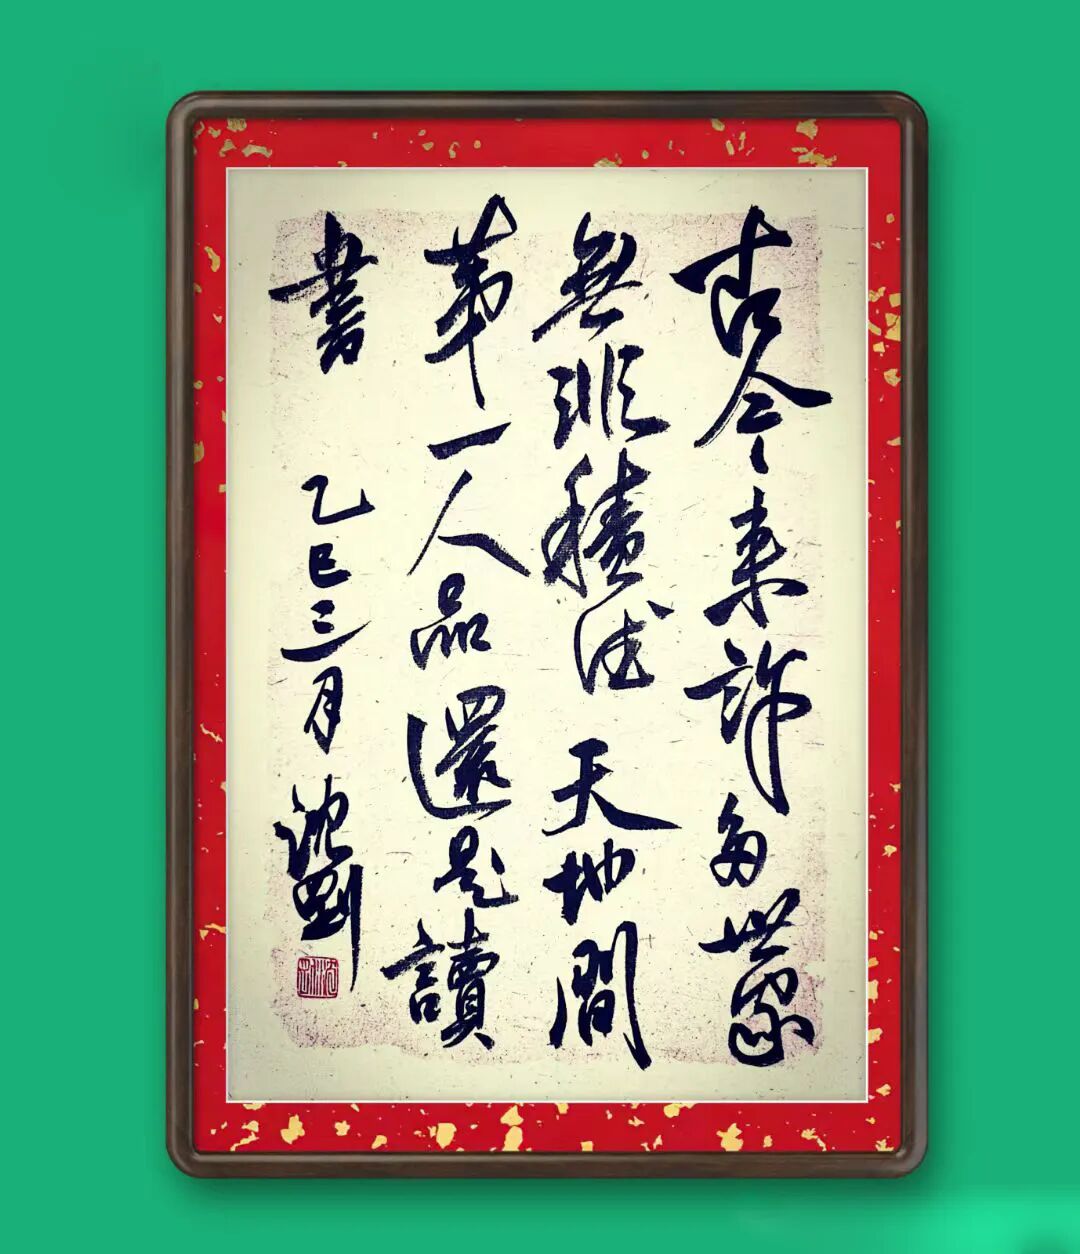 古今来许多世家
無非積德天地間
第一人品還是讀
書
乙巳三月